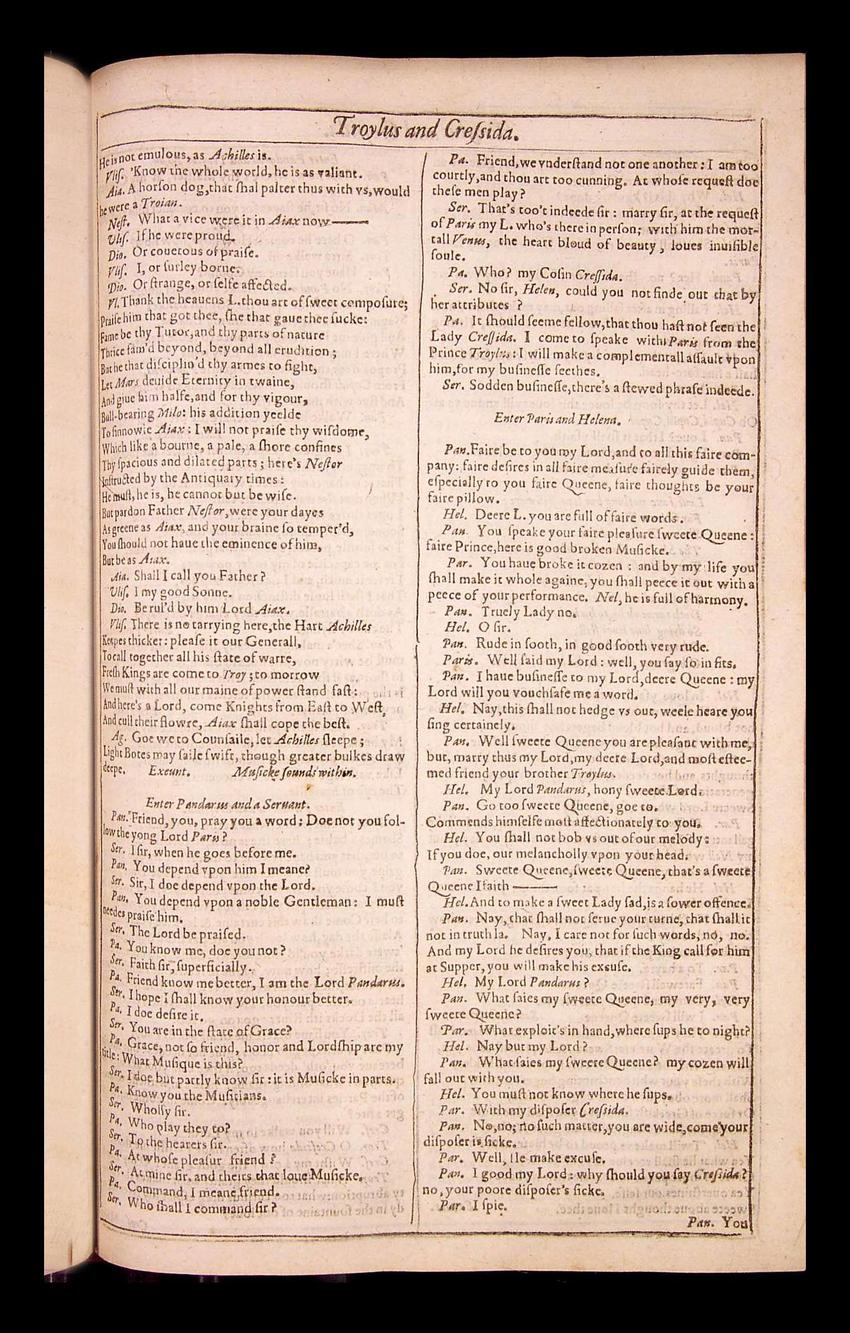 Troylus and Cressida.
He is not emulous, as Achilles is.
Vlis. 'Know the whole world, he is as valiant.
Aia. A horson dog, that shal palter thus with vs, would
he were a Troian.
Nest. What a vice were it in Aiax now——
Vlis. If he were proud.
Dio. Or couetous of praise.
Vlis. I, or surley borne.
Dio. Or strange, or selfe affected.
Vl. Thank the heauens L. thou art of sweet composure;
Praise him that got thee, she that gaue thee sucke:
Fame be thy Tutor, and thy parts of nature
Thrice fam'd beyond, beyond all erudition;
But he that disciplin'd thy armes to fight,
Let Mars deuide Eternity in twaine,
And giue him halfe, and for thy vigour,
Bull-bearing Milo: his addition yeelde
To sinnowie Aiax: I will not praise thy wisdome,
Which like a bourne, a pale, a shore confines
Thy spacious and dilated parts; here's Nestor
Instructed by the Antiquary times:
He must, he is, he cannot but be wise.
But pardon Father Nestor, were your dayes
As greene as Aiax, and your braine so temper'd,
You should not haue the eminence of him,
But be as Aiax.
Aia. Shall I call you Father?
Vlis. I my good Sonne.
Dio. Be rul'd by him Lord Aiax.
Vlis. There is no tarrying here, the Hart Achilles
Keepes thicker: please it our Generall,
To call together all his state of warre,
Fresh Kings are come to Troy; to morrow
We must with all our maine of power stand fast:
And here's a Lord, come Knights from East to West,
And cull their flowre, Aiax shall cope the best.
Ag. Goe we to Counsaile, let Achilles sleepe;
Light Botes may saile swift, though greater bulkes draw
deepe. Exeunt. Musicke sounds within.
Enter Pandarus and a Seruant.
Pan. Friend, you, pray you a word: Doe not you fol-
low the yong Lord Paris?
Ser. I sir, when he goes before me.
Pan. You depend vpon him I meane?
Ser. Sir, I doe depend vpon the Lord.
Pan. You depend vpon a noble Gentleman: I must
needes praise him.
Ser. The Lord be praised.
Pa. You know me, doe you not?
Ser. Faith sir, superficially.
Pa. Friend know me better, I am the Lord Pandarus.
Ser. I hope I shall know your honour better.
Pa. I doe desire it.
Ser. You are in the state of Grace?
Pa. Grace, not so friend, honor and Lordship are my
title: What Musique is this?
Ser. I doe but partly know sir: it is Musicke in parts.
Pa. Know you the Musitians.
Ser. Wholly sir.
Pa. Who play they to?
Ser. To the hearers sir.
Pa. At whose pleasur friend?
Ser. At mine sir, and theirs that loue Musicke.
Pa. Command, I meane friend.
Ser. Who shall I command sir?
Pa. Friend, we vnderstand not one another: I am too
courtly, and thou art too cunning. At whose request doe
these men play?
Ser. That's too't indeede sir: marry sir, at the request
of Paris my L. who's there in person; with him the mor-
tall Venus, the heart bloud of beauty, loues inuisible
soule.
Pa. Who? my Cosin Cressida.
Ser. No sir, Helen, could you not finde out that by
her attributes?
Pa. It should seeme fellow, that thou hast not seen the
Lady Cressida. I come to speake with Paris from the
Prince Troylus: I will make a complementall assault vpon
him, for my businesse seethes.
Ser. Sodden businesse, there's a stewed phrase indeede.
Enter Paris and Helena.
Pan. Faire be to you my Lord, and to all this faire com-
pany: faire desires in all faire measure fairely guide them,
especially to you faire Queene, faire thoughts be your
faire pillow.
Hel. Deere L. you are full of faire words.
Pan. You speake your faire pleasure sweete Queene:
faire Prince, here is good broken Musicke.
Par. You haue broke it cozen: and by my life you
shall make it whole againe, you shall peece it out with a
peece of your performance. Nel, he is full of harmony.
Pan. Truely Lady no.
Hel. O sir.
Pan. Rude in sooth, in good sooth very rude.
Paris. Well said my Lord: well, you say so in fits.
Pan. I haue businesse to my Lord, deere Queene: my
Lord will you vouchsafe me a word.
Hel. Nay, this shall not hedge vs out, weele heare you
sing certainely.
Pan. Well sweete Queene you are pleasant with me,
but, marry thus my Lord, my deere Lord, and most estee-
med friend your brother Troylus.
Hel. My Lord Pandarus, hony sweete Lord.
Pan. Go too sweete Queene, goe to.
Commends himselfe most affectionately to you.
Hel. You shall not bob vs out of our melody:
If you doe, our melancholly vpon your head.
Pan. Sweete Queene, sweete Queene, that's a sweete
Queene Ifaith——
Hel. And to make a sweet Lady sad, is a sower offence.
Pan. Nay, that shall not serue your turne, that shall it
not in truth la. Nay, I care not for such words, no, no.
And my Lord he desires you, that if the King call for him
at Supper, you will make his excuse.
Hel. My Lord Pandarus?
Pan. What saies my sweete Queene, my very, very
sweete Queene?
Par. What exploit's in hand, where sups he to night?
Hel. Nay but my Lord?
Pan. What saies my sweete Queene? my cozen will
fall out with you.
Hel. You must not know where he sups.
Par. With my disposer Cressida.
Pan. No, no; no such matter, you are wide, come your
disposer is sicke.
Par. Well, Ile make excuse.
Pan. I good my Lord: why should you say Cressida?
no, your poore disposer's sicke.
Par. I spie.
Pan. You